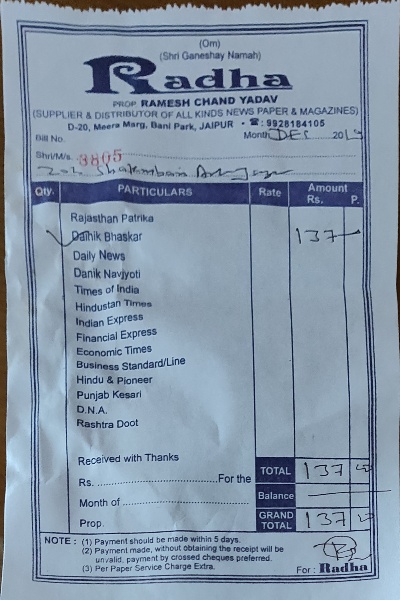 (Om)
(Shri Ganeshay Namah)
Radha
PROP. RAMESH CHAND YADAV
(SUPPLIER & DISTRIBUTOR OF ALL KINDS NEWS PAPER & MAGAZINES)
D-20, Meera Marg, Bani Park, JAIPUR • ☎: 9928184105
Bill No. Month DEC 2019
Shri/M/s. 3805
Qty. PARTICULARS Rate Amount
Rs. P.
Rajasthan Patrika
Dainik Bhaskar 137
Daily News
Danik Navjyoti
Times of India
Hindustan Times
Indian Express
Financial Express
Economic Times
Business Standard/Line
Hindu & Pioneer
Punjab Kesari
D.N.A.
Rashtra Doot
Received with Thanks
Rs. ..............................For the TOTAL 137
Month of ............................... Balance
Prop. GRAND TOTAL 137
NOTE : (1) Payment should be made within 5 days.
(2) Payment made, without obtaining the receipt will be
unvalid, payment by crossed cheques preferred.
(3) Per Paper Service Charge Extra. For : Radha